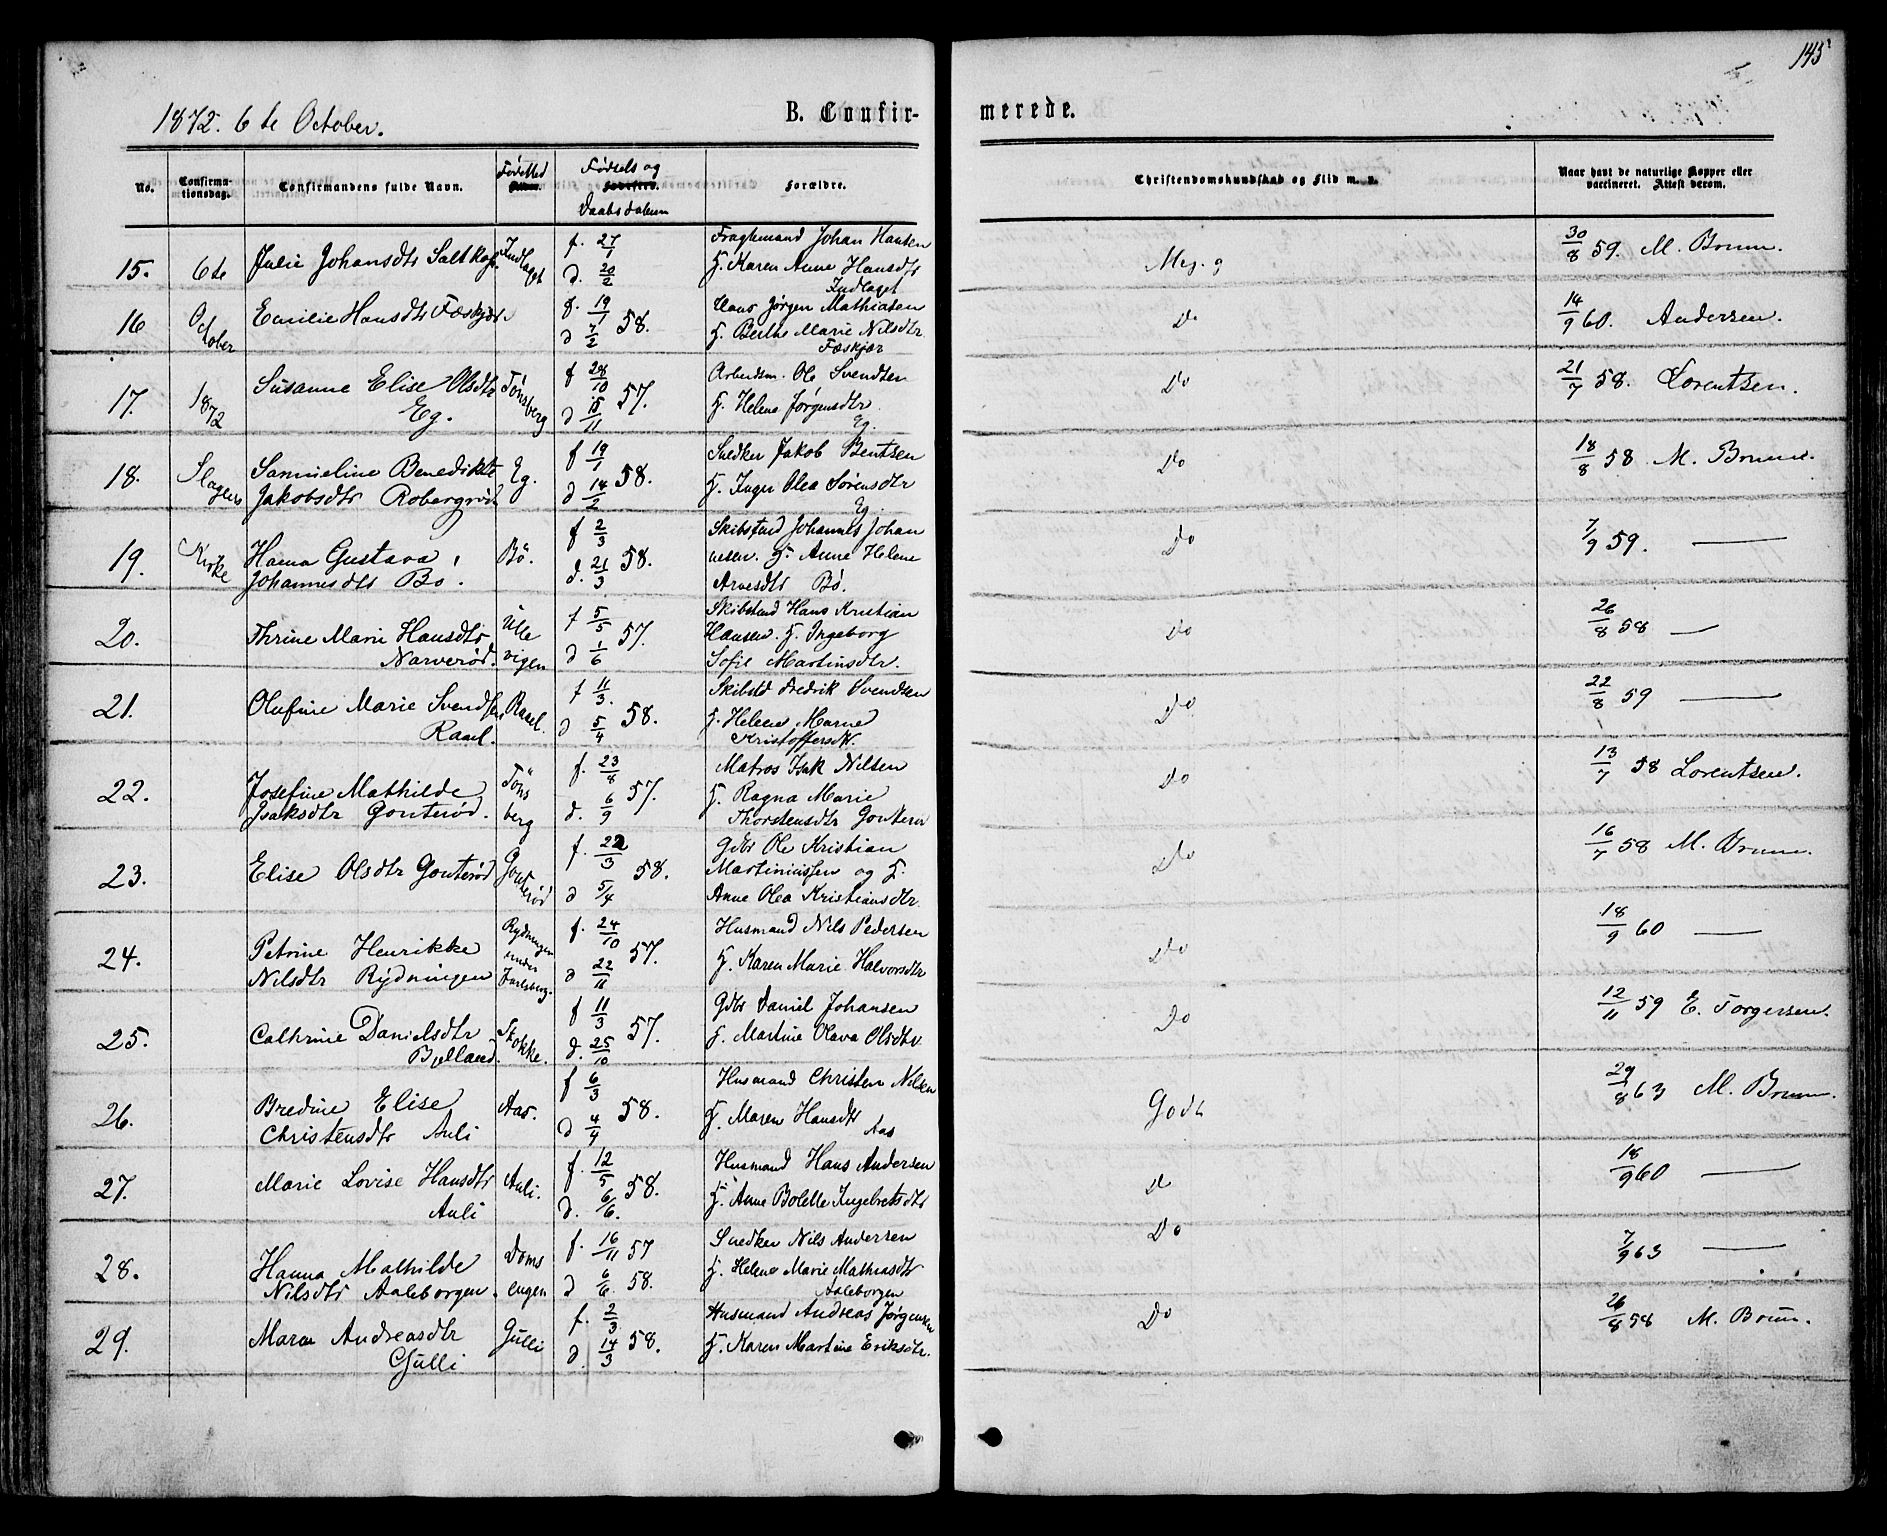 145
1872. 6te October.
B. Confir-
merede.
No.
Confirma-
tionsdag.
Confirmandens fulde Navn.
Fødested
Fødsels og
Daabsdatum
Forældre.
Christendomskundskab og Flid m. v.
Naar havt de naturlige Kopper eller
vaccineret. Attest derom.
6te October 1872 Slagens Kirke
15. Julie Johansdtr Saltkop. Indlaget
f. 27/1
d. 20/2
Fragtemand Johan Hansen
H. Karen Anne Hansdtr
Indlaget
Meg. g
30/8 59. M. Bruun.
16 Emilie Hansdtr Fæskjær.
f. 19/1
d 7/2 58.
Hans Jørgen Mathiasen
H. Berthe Marie Nilsdtr.
Fæskjær
Do
14/9 60. Andersen.
17. Susanne Elise Olsdtr
Eg.
Tönsberg
f 28/10
d 15/11 57.
Arbeidsm. Ole Svendsen
H. Helene Jørgensdtr.
Eg.
Do
21/7 58. Lorentsen.
18. Samueline Benedikte
Jakobsdtr Robergrød
Eg.
f 19/1
d 14/2 58.
Snedker Jakob Bentsen
H. Inger Olea Sörensdtr
Eg.
Do
18/8 58 M. Bruun.
19. Hanna Gustava
Johannesdtr Bö.
Bö.
f 2/3
d. 21/3 58.
Skibstmd Johannes Johan
nesen. H. Anne Helene
Arvesdtr Bö.
Do
7/9 59. —
20. Thrine Marie Hansdtr
Narverød.
Ulle
vigen
f 5/5
d 1/6 57.
Skibstmd Hans Kristian
Hansen. H. Ingeborg
Sofie Martinsdtr.
Do
26/8 58 —
21. Olufine Marie Svendsen
Raael.
Raael.
f 11/3.
d 5/4 58.
Skibstd Fredrik Svendsen
H. Helene Marie
Kristoffersdtr.
Do
22/8 59 —
22. Josefine Mathilde
Isaksdtr Gonterød.
Töns
berg
f. 23/8
d. 6/9 57.
Matros Isak Nilsen
H. Ragna Marie
Thorstensdtr Gonterø
Do
13/7 58 Lorentsen.
23. Elise Olsdtr Gonterød
Gonterød
f. 22/3
d 5/4 58.
Gdbr Ole Kristian
Martiniussen og H.
Anne Olea Kristiansdtr.
Do
16/7 58 M. Bruun.
24. Petrine Henrikke
Nilsdtr Rydningen
Rydningen
under
Jarlsberg.
f. 24/10
d 22/11 57.
Husmand Nils Pedersen
H. Karen Marie Halvorsdtr
Do
18/9 60 —
25. Cathrine Danielsdtr
Bjelland.
Stokke.
f 11/3
d. 25/10 57.
Gdbr Daniel Johansen
H. Martine Olava Olsdtr.
Do
12/11 59 E. Torgersen.
26. Bredine Elise
Christensdtr Auli
Aas.
f 6/3
d 4/4 58.
Husmand Christen Nilsen
H. Maren Hansdtr
Aas
Godt
29/8 63 M. Bruun.
27. Marie Lovise Hansdtr
Auli
Auli.
f. 12/5
d. 6/6 58.
Husmand Hans Andersen
H. Anne Bolette Ingebretsdtr
Do
18/9 60 —
28. Hanna Mathilde
Nilsdtr Aaleborgen.
Doms
engen
f. 16/11 57
d 6/6 58.
Snedker Nils Andersen
H. Helene Marie Mathiasdtr
Aaleborgen
Do
7/9 63 —
29. Maren Andreasdtr
Gulli
Gulli
f. 2/3
d. 14/3 58.
Husmand Andreas Jørgensen
H. Karen Martine Eriksdtr.
Do
26/8 58 M. Bruun.